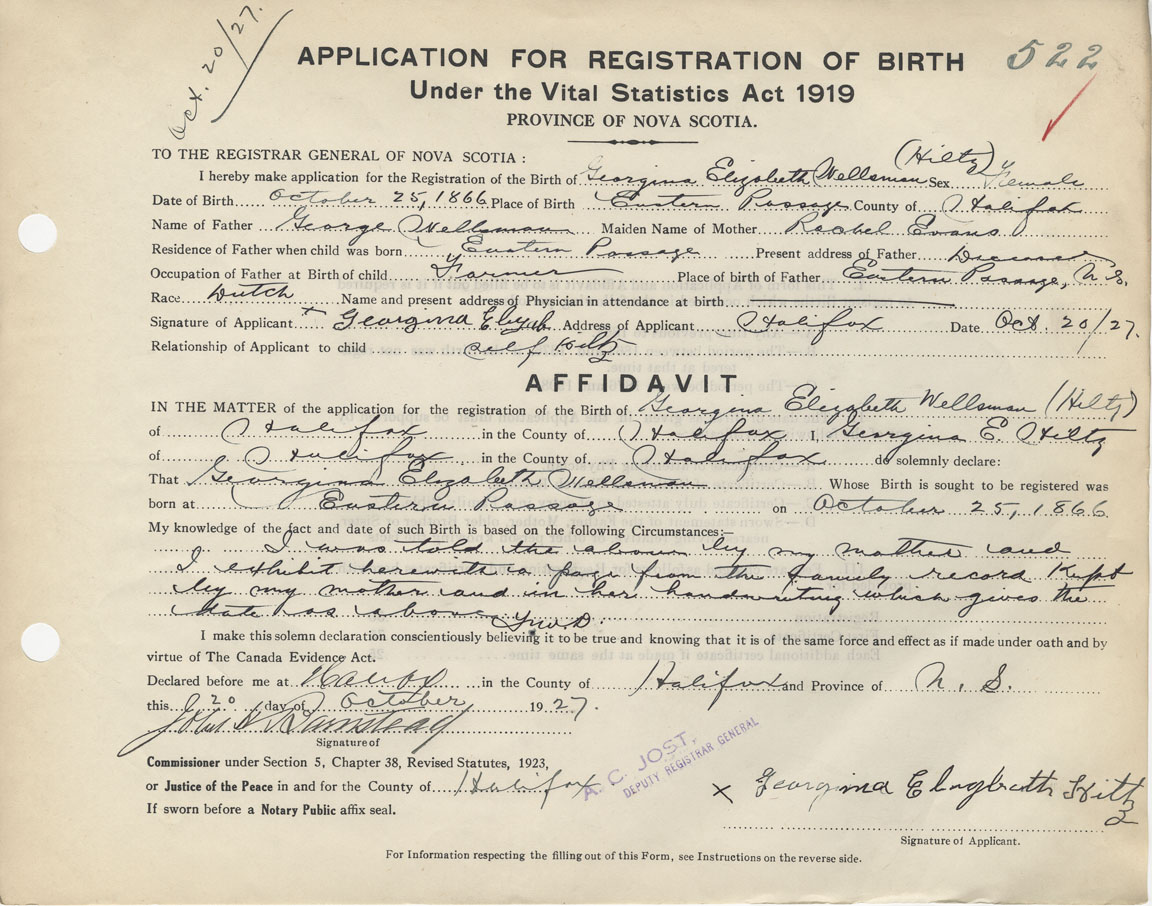 Oct. 20/27.
522
APPLICATION FOR REGISTRATION OF BIRTH
Under the Vital Statistics Act 1919
PROVINCE OF NOVA SCOTIA.
TO THE REGISTRAR GENERAL OF NOVA SCOTIA :
(Hiltz)
I hereby make application for the Registration of the Birth of Georgina Elizabeth Wellsman Sex Female
Date of Birth October 25, 1866 Place of Birth Eastern Passage County of Halifax
Name of Father George Wellsman Maiden Name of Mother Rachel Evans
Residence of Father when child was born Eastern Passage Present address of Father Deceased
Occupation of Father at Birth of child Farmer Place of birth of Father Eastern Passage, N.S.
Race Dutch Name and present address of Physician in attendance at birth
Signature of Applicant x Georgina Elizab Address of Applicant Halifax Date Oct. 20/27.
Relationship of Applicant to child self Hiltz
AFFIDAVIT
IN THE MATTER of the application for the registration of the Birth of Georgina Elizabeth Wellsman (Hiltz)
of Halifax in the County of Halifax I, Georgina E. Hiltz
of Halifax in the County of Halifax do solemnly declare:
That Georgina Elizabeth Wellsman Whose Birth is sought to be registered was
born at Eastern Passage on October 25, 1866
My knowledge of the fact and date of such Birth is based on the following Circumstances:—
I was told the above by my mother and
I exhibit herewith a page from the family record kept
by my mother and in her handwriting which gives the
date as above
I make this solemn declaration conscientiously believing it to be true and knowing that it is of the same force and effect as if made under oath and by
virtue of The Canada Evidence Act.
Declared before me at Halifax in the County of Halifax and Province of N. S.
this 20 day of October 1927.
Signature of
Commissioner under Section 5, Chapter 38, Revised Statutes, 1923,
or Justice of the Peace in and for the County of Halifax
If sworn before a Notary Public affix seal.
A. C. JOST,
DEPUTY REGISTRAR GENERAL
x Georgina Elizabeth Hiltz
Signature of Applicant.
For Information respecting the filling out of this Form, see Instructions on the reverse side.